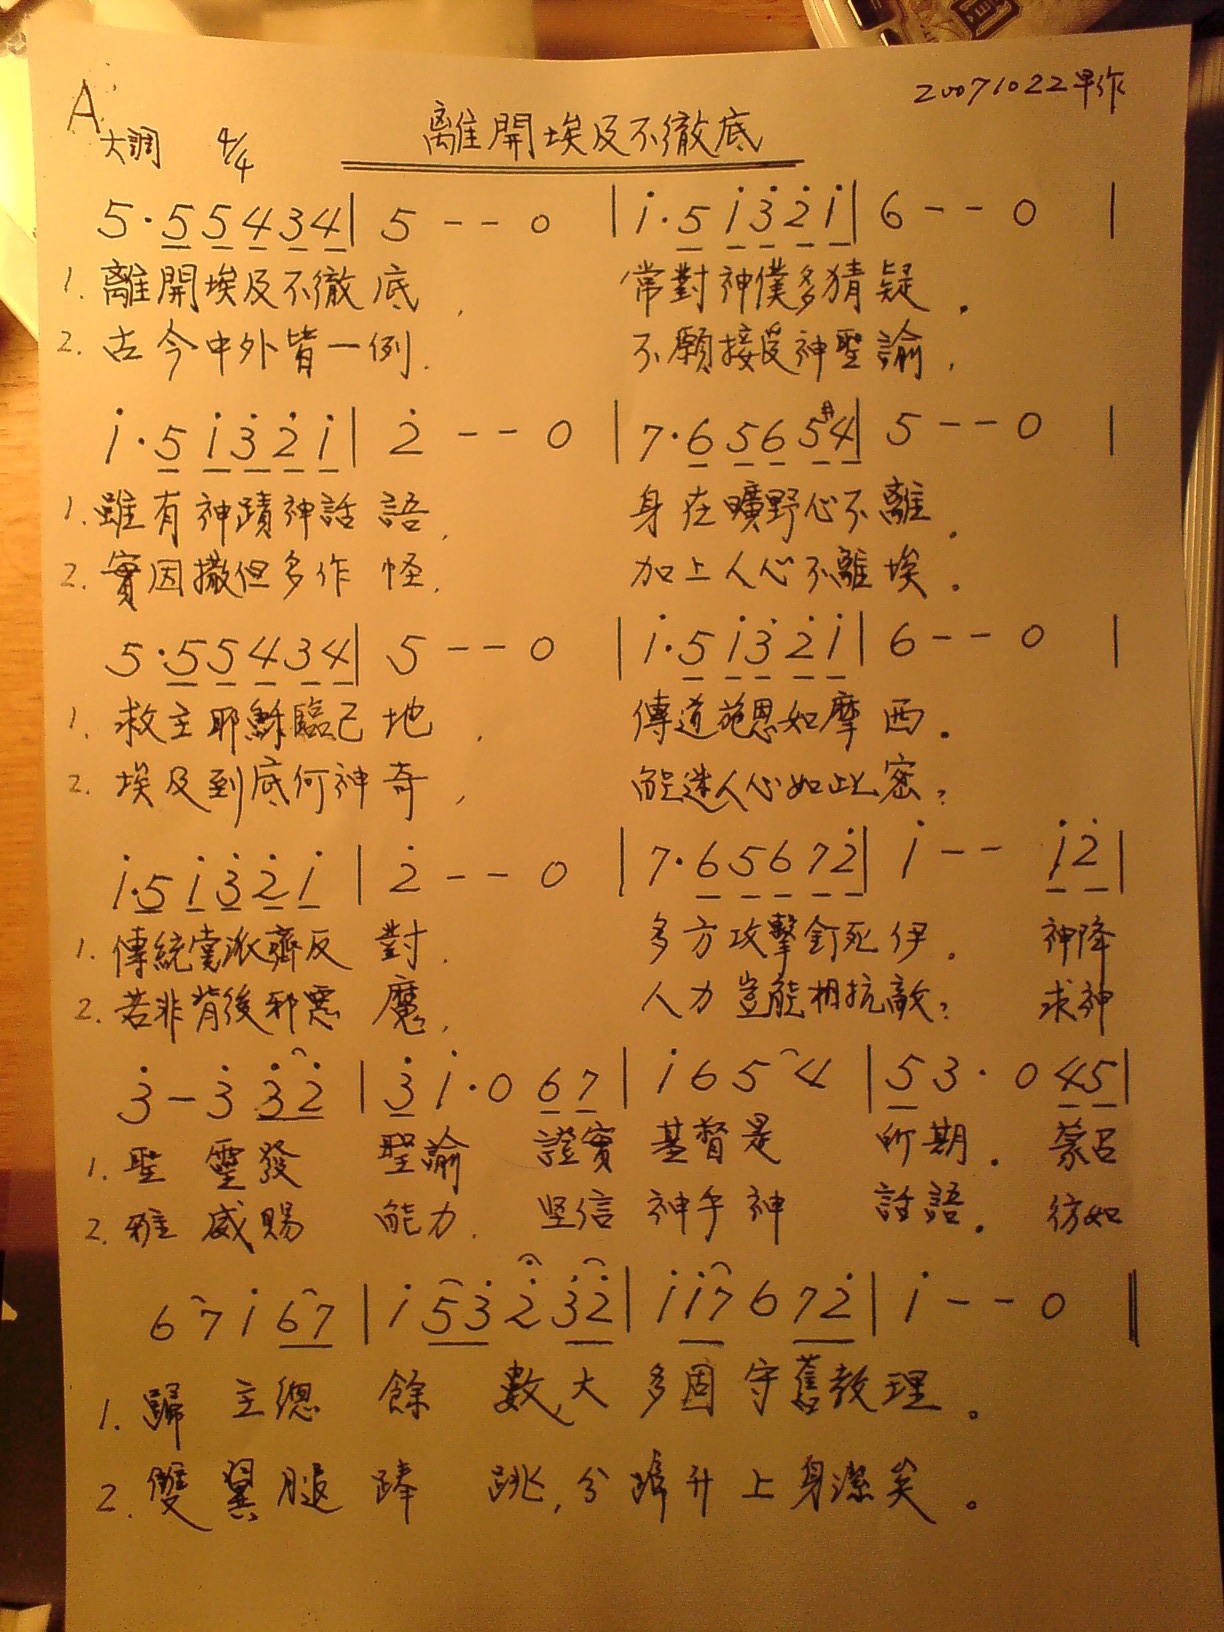 A大調 4/4 離開埃及不徹底 20071022早作
5·55434| 5--0 |i·5i̇3̇2̇i̇| 6--0 |
1. 離開埃及不徹底, 常對神僕多猜疑。
2. 古今中外皆一例. 不願接受神聖諭,
i̇·5i̇3̇2̇i̇| 2̇--0 |7·6565#4| 5--0 |
1. 雖有神蹟神話語, 身在曠野心不離。
2. 實因撒但多作怪, 加上人心不離埃。
5·55434| 5--0 |i̇·5i̇3̇2̇i̇| 6--0 |
1. 救主耶穌臨己地, 傳道施恩如摩西。
2. 埃及到底何神奇, 能迷人心如此密?
i̇·5i̇3̇2̇i̇ | 2̇--0 |7·65672̇| i̇-- i̇2̇|
1. 傳統黨派齊反對. 多方攻擊釘死伊. 神降
2. 若非背後邪惡魔, 人力豈能相抗敵? 求神
3̇-3̇ 3̇2̇ |3̇i̇·0 67| i̇654 |53·0 45|
1. 聖靈發聖諭 證實基督是所期。蒙召
2. 雅威賜能力. 堅信神手神話語。彷如
67i̇67 |i̇53̇2̇3̇2̇| i̇i̇7672̇| i̇--0 ‖
1. 歸主總餘數, 大多固守舊教理。
2. 雙翼腿蹄跳, 分蹄升上身潔矣。